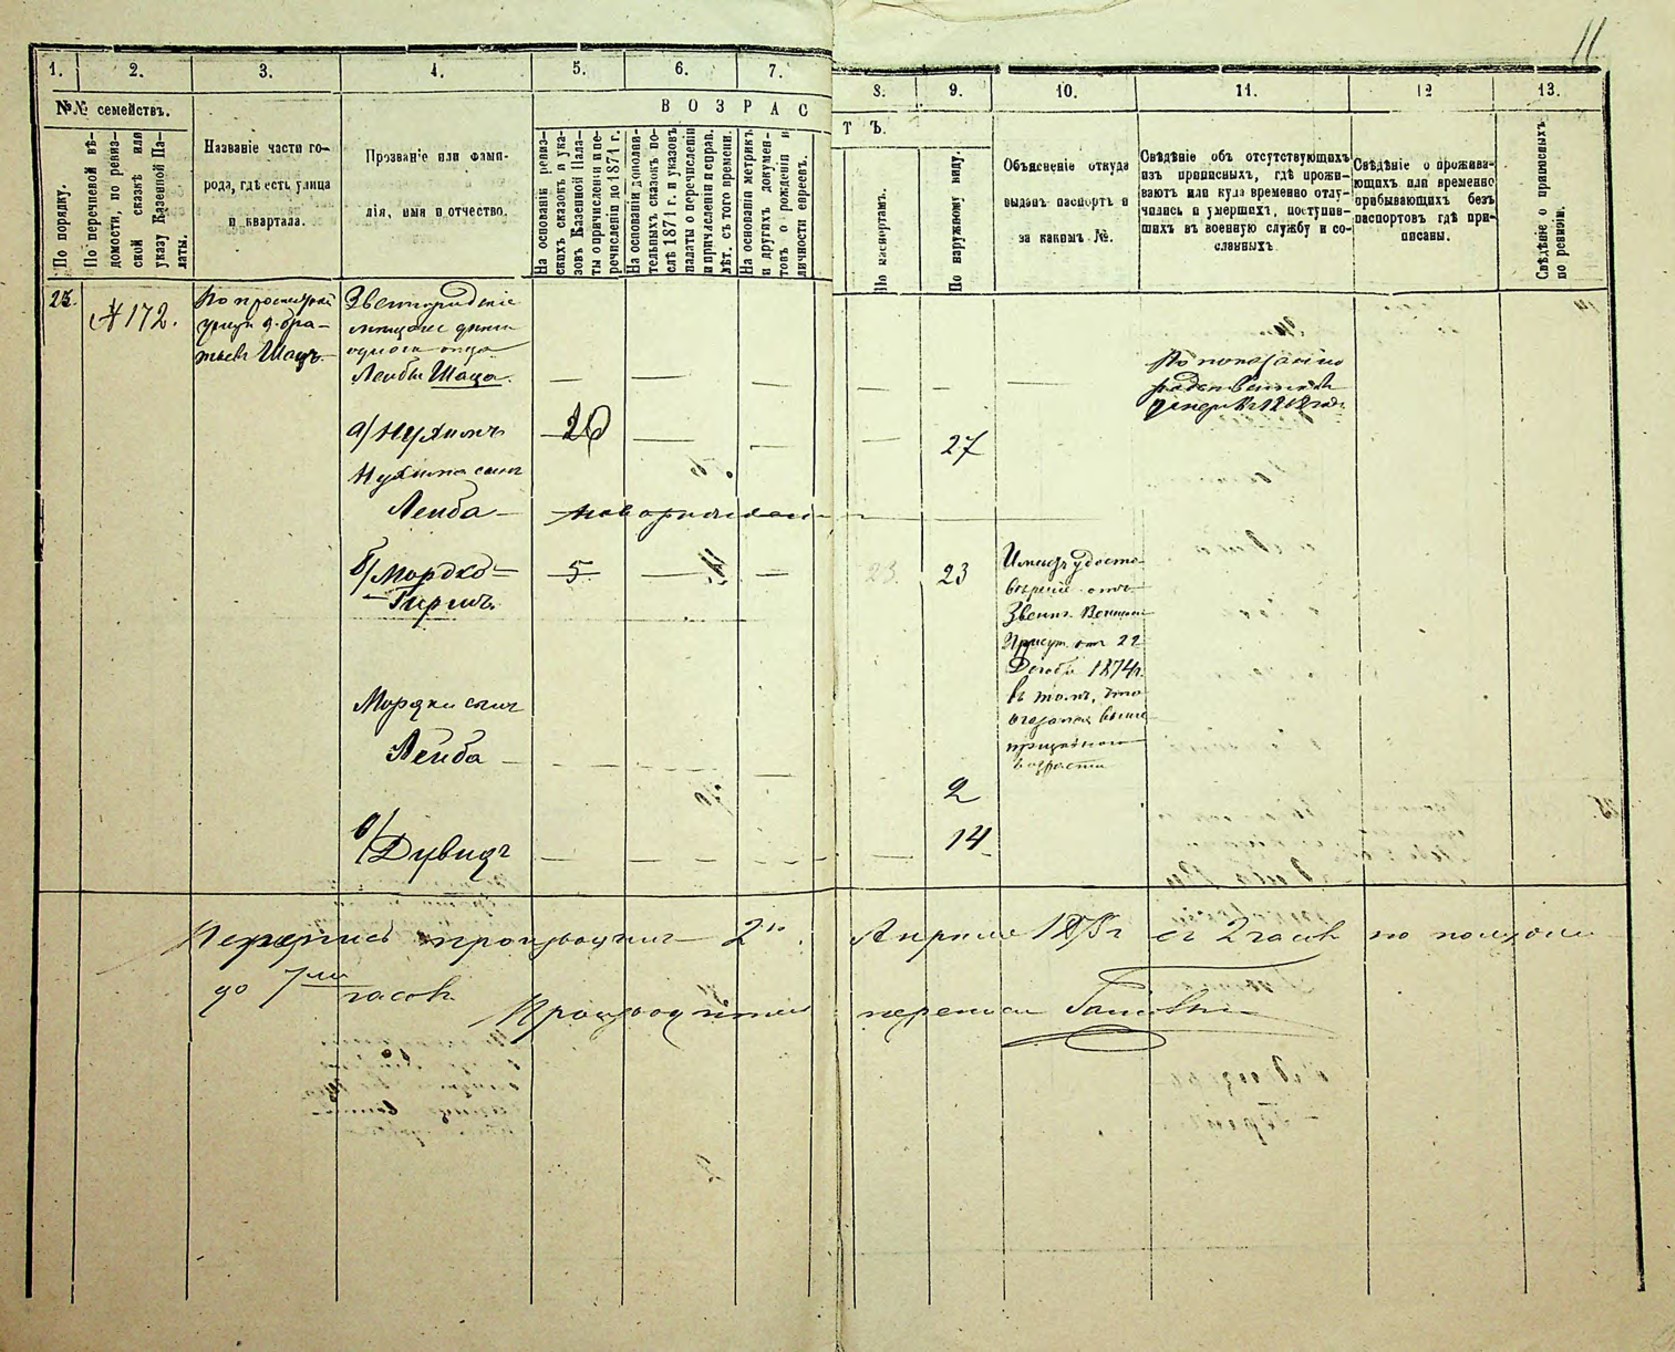 11
1.
2.
3.
4.
5.
6.
7.
8.
9.
10.
11.
12
13.
№№ семействъ.
ВОЗРАСТЪ.
По порядку.
По перечневой вѣ-
домости, по ревиз-
ской сказкѣ или
указу Казенной Па-
латы.
Названіе части го-
рода, гдѣ есть улица
и квартала.
Прозваніе или фами-
лія, имя и отчество.
На основаніи ревиз-
скихъ сказокъ и ука-
зовъ Казенной Пала-
ты о причисленіи и пе-
речисленіи до 1871 г.
На основаніи дополни-
тельныхъ сказокъ по-
слѣ 1871 г. и указовъ
палаты о перечисленіи
и причисленіи и справ.
лѣт. съ того времени.
На основаніи метрикъ
и другихъ докумен-
товъ о рожденіи и
личности евреевъ.
По паспортамъ.
По наружному виду.
Объясненіе откуда
выданъ паспортъ и
за какимъ №.
Свѣдѣніе объ отсутствующихъ
изъ приписныхъ, гдѣ прожи-
ваютъ или куда временно отлу-
чились и умершихъ, поступив-
шихъ въ военную службу и со-
сланныхъ
Свѣдѣніе о прожива-
ющихъ или временно
прибывающихъ безъ
паспортовъ гдѣ при-
писаны.
Свѣдѣніе о приписныхъ
по ревизіи.
23.
№ 172.
улицы д. бра-
тьевъ Шацъ
Звенигородскіе
мещане дети
одного отца
Лейбы Шаца.
По показанію
родственниковъ
а/ Нухимъ
26
27
Нухима сынъ
Лейба —
новорожден
б/ Мордко —
— Гиршъ.
5
23.
23
Имеетъ удосто-
вереніе отъ
Звениг. Воинскаго
Присут. отъ 22
1874 г.
въ томъ, что
возраста
Мордки сынъ
Лейба —
2
в/ Дувидъ
14
Перепись произведена 2го Апреля 1875 г съ 2 часовъ по полудни
до 7ми часовъ
Производитель переписи